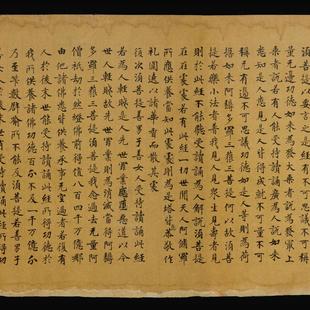 須菩提以要言之是經有不可思議不可稱
量无邊功德如來為發大乘者說為發最上
乘者說若有人能受持讀誦廣為人說如來
悉知是人悉見是人皆得成就不可量不可
稱无有邊不可思議功德如是人等則為荷
擔如來阿耨多羅三藐三菩提何以故須菩
提若樂小法者著我見人見眾生見壽者見
則於此經不能聽受讀誦為人解說須菩提
在在處處若有此經一切世間天人阿修羅
所應供養當知此處則為是塔皆應恭敬作
禮圍遶以諸華香而散其處
復次須菩提善男子善女人受持讀誦此經
若為人輕賤是人先世罪業應墮惡道以今
世人輕賤故先世罪業則為消滅當得阿耨
多羅三藐三菩提須菩提我念過去无量阿
僧祇劫於然燈佛前得值八百四千萬億那
由他諸佛悉皆供養承事无空過者若復有
人於後末世能受持讀誦此經所得功德於
我所供養諸佛功德百分不及一千萬億分
乃至算數譬喻所不能及須菩提若善男子
善女人於後末世有受持讀誦此經所得功